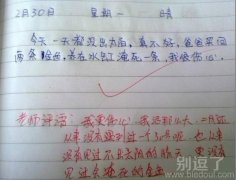 2月30日 星期一 晴
今天一天都没出太阳，真不好，爸爸买回
两条鲶鱼，养在水缸淹死一条，我很伤心！
老师评语：我更伤心！我活那么大，二月还
从来没有过到过一个30号呢，也从来
没有见过不出太阳的晴天，更没有
见过会淹死的鱼
别逗了
www.biedoul.com